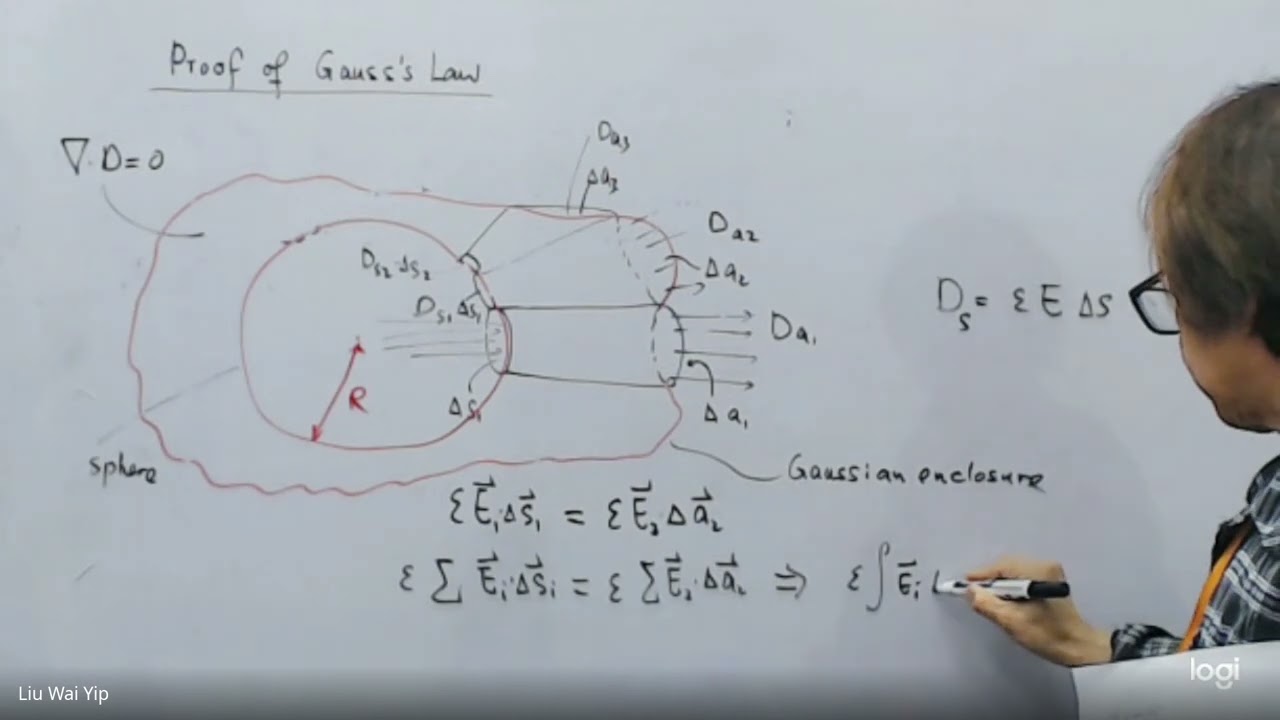 Proof of Gauss's Law
∇·D=0
Da₃
Δa₃
Da₂
Δa₂
Ds₂·Δs₂
Ds₁Δs₁
Da₁
Dₛ= ε E Δs
R
Δs₁
Δa₁
sphere
Gaussian enclosure
ε E⃗₁·Δs⃗₁ = ε E⃗₂ Δa⃗₂
ε ∑ E⃗ᵢ·Δs⃗ᵢ = ε ∑ E⃗₂·Δa⃗₂ ⇒ ε ∫ E⃗ᵢ
logi
Liu Wai Yip